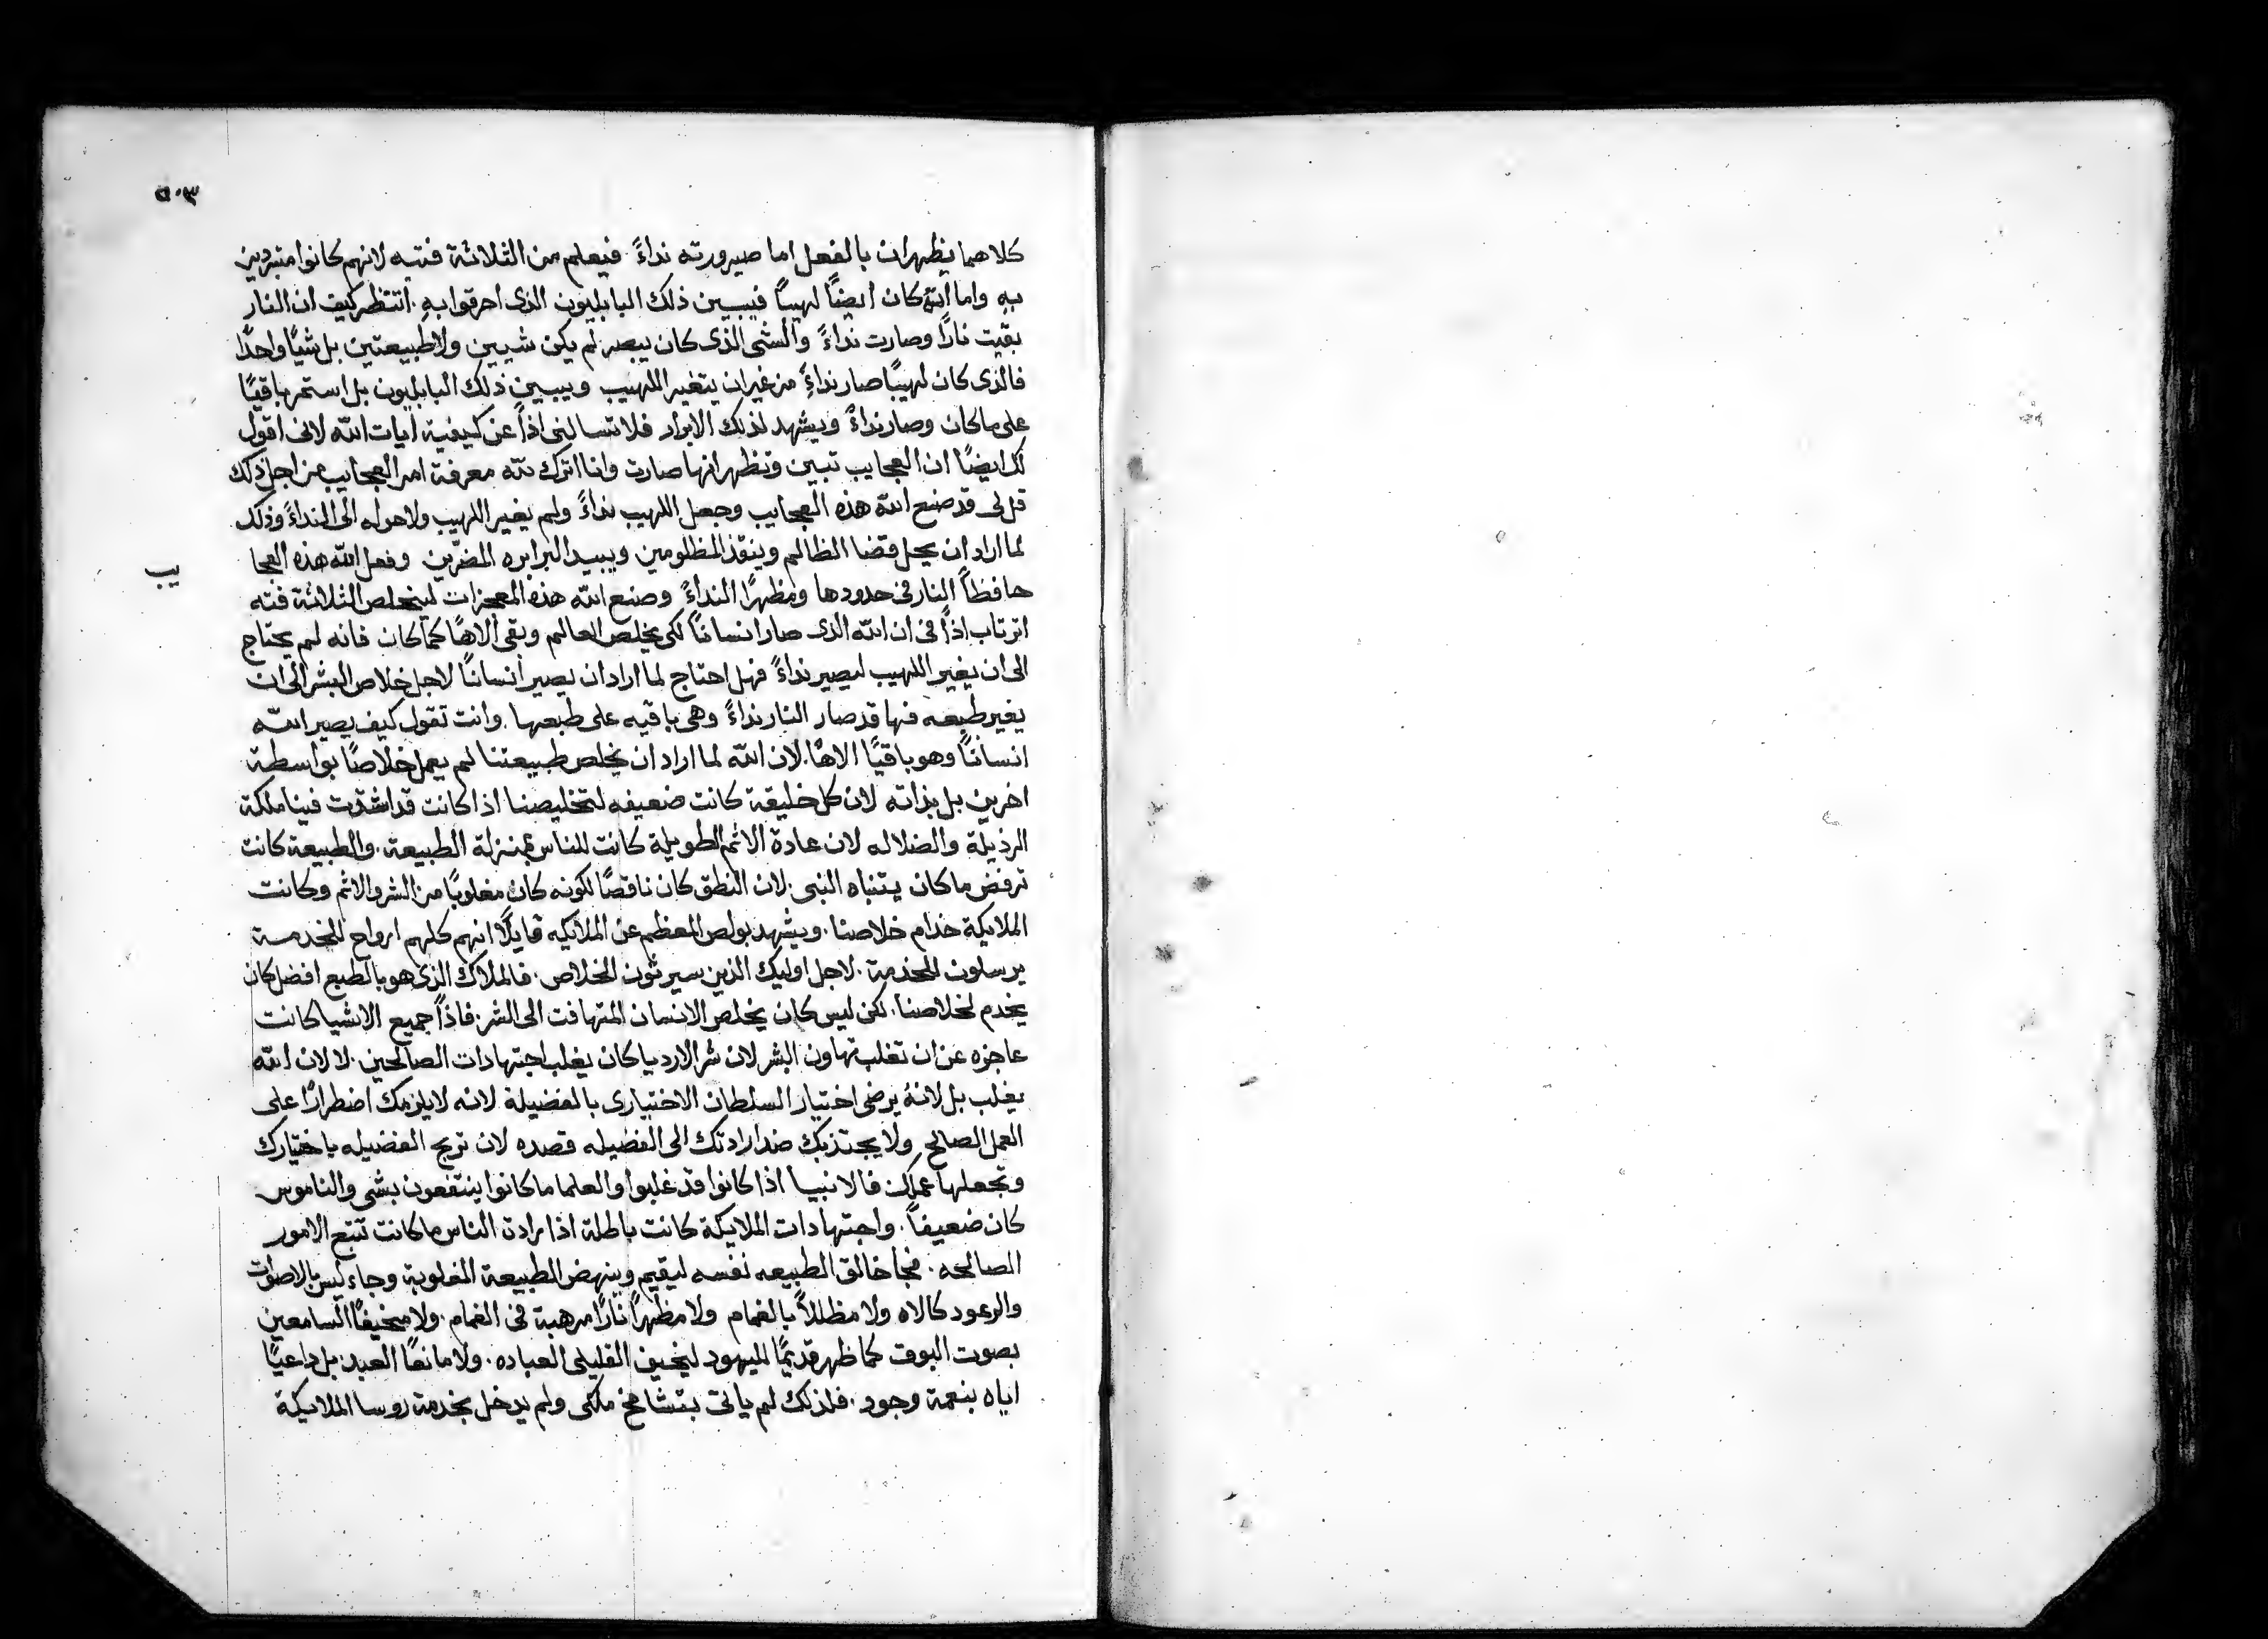 ٥٠٣
كلاهما يظهران بالفعل اما صيرورته نداءً. فيعلم من الثلاثة فتيه لانهم كانوا متبردين
بهِ واما انهُ كان ايضًا لهيبًا فيبين ذلك البابليون الذى احرقوا بهِ. انتظر كيف ان النار
بقيت نارًا وصارت نداءً والشى الذى كان يبصر لم يكن شيين ولا طبيعتين بل شيًا واحدًا
فالذى كان لهيبًا صار نداءً من غير ان يتغير اللهيب ويبين ذلك البابليون بل استمر باقيًا
على ماكان وصار نداءً ويشهد لذلك الابرار فلا تسالنى اذاً عن كيفية ايات الله لانى اقول
لك ايضًا ان العجايب تبين وتظهر انها صارت وانا اترك لله معرفة امر العجايب من اجل ذلك
قل لى قد صنع الله هذه العجايب وجعل اللهيب نداءً ولم يغير اللهيب ولا حوله الى النداءً وذلك
لما اراد ان يحل قضا الظالم وينقذ المظلومين ويبيد البرابره المضرّين وفعل الله هذه العجا
يب
حافظاً النار فى حدودها ومظهرًا النداءً وصنع الله هذه المعجزات ليخلص الثلاثة فته
اترتاب اذاً فى ان الله الذى صار انسانًا لكى يخلص العالم وبقى الاهًا كما كان فانه لم يحتاج
الى ان يغير اللهيب ليصير نداءً فهل احتاج لما اراد ان يصير انسانًا لاجل خلاص البشر الى ان
يغير طبعه فها قد صار النار نداءً وهى باقيه على طبعها. وانت تقول كيف يصير الله
انسانًا وهو باقيًا الاهًا. لان الله لما اراد ان يخلص طبيعتنا لم يعمل خلاصًا بواسطة
اخرين بل بذاته لان كل خليقة كانت ضعيفه لتخليصنا اذا كانت قد اشتدت فينا ملكة
الرذيلة والضلاله لان عادة الاثم الطويلة كانت للناس بمنزلة الطبيعة. والطبيعة كانت
ترفض ماكان يتنباه النبى. لان النطق كان ناقصًا لكونه كان مغلوبًا من الشر والاثم وكانت
الملايكة خدام خلاصنا. ويشهد بولص المعظم عن الملايكه قايلًا انهم كلهم ارواح للخدمة
يرسلون للخدمة. لاجل اوليك الذين سيرثون الخلاص. فالملاك الذى هو بالطبع افضل كان
يخدم لخلاصنا. لكن ليس كان يخلص الانسان المتهافت الى الشر. فاذاً جميع الاشيا كانت
عاجزه عن ان تغلب تهاون البشر لان شر الارديا كان يغلب اجتهادات الصالحين. لا لان الله
يغلب بل لانهُ يرضى اختيار السلطان الاختيارى بالفضيلة لانه لا يلزمك اضطرارًا على
العمل الصالح ولا يجتذبك ضد ارادتك الى الفضيله قصده لان تربح الفضيله باختيارك
وتجعلها عملك فالانبيا اذا كانوا قد غلبوا والعلما ما كانوا ينتفعون بشى والناموس
كان ضعيفاً. واجتهادات الملايكة كانت باطلة اذا رادة الناس ما كانت تتبع الامور
الصالحه. فجأ خالق الطبيعه نفسه ليقيم وينهض الطبيعة المغلوبة وجاء ليس بالاصوات
والرعود كالاه ولا مظللاً بالغمام ولا مظهراً نارًا مرهبة فى الغمام. ولا مخيفًا السامعين
بصوت البوق كما ظهر قديمًا لليهود ليخيف القليلى العباده. ولا مانعًا العبد بل داعيًا
اياه بنعمة وجود. فلذلك لم ياتى بتشامخ ملكى ولم يدخل بخدمة روسا الملايكة